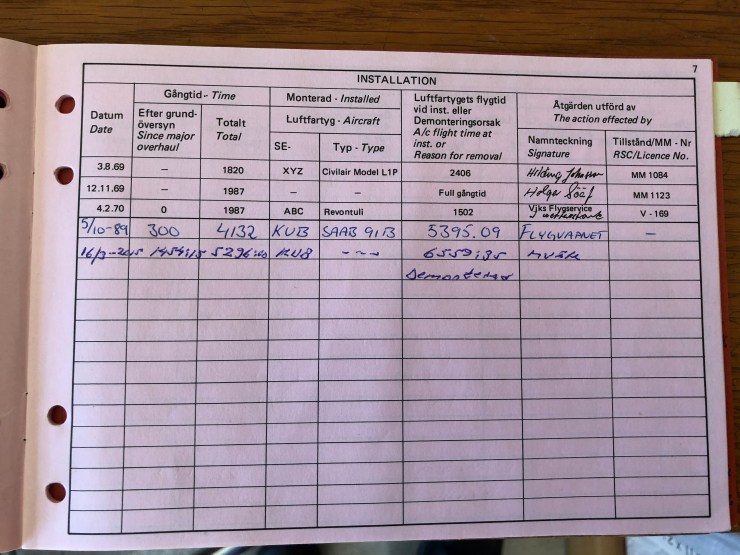 7
INSTALLATION
Datum
Date
Gångtid - Time
Efter grund-
översyn
Since major
overhaul
Totalt
Total
Monterad - Installed
Luftfartyg - Aircraft
SE-
Typ - Type
Luftfartygets flygtid
vid inst. eller
Demonteringsorsak
A/c flight time at
inst. or
Reason for removal
Åtgärden utförd av
The action effected by
Namnteckning
Signature
Tillstånd/MM - Nr
RSC/Licence No.
3.8.69 – 1820 XYZ Civilair Model L1P 2406 Hilding Johansson MM 1084
12.11.69 – 1987 Full gångtid Holger Sööf MM 1123
4.2.70 0 1987 ABC Revontuli 1502 Vjks Flygservice V - 169
5/10-89 300 4132 KUB SAAB 91B 5395.09 FLYGVAPNET –
1454:15 5296:40 KUB -~- 6559:35
Demonterad